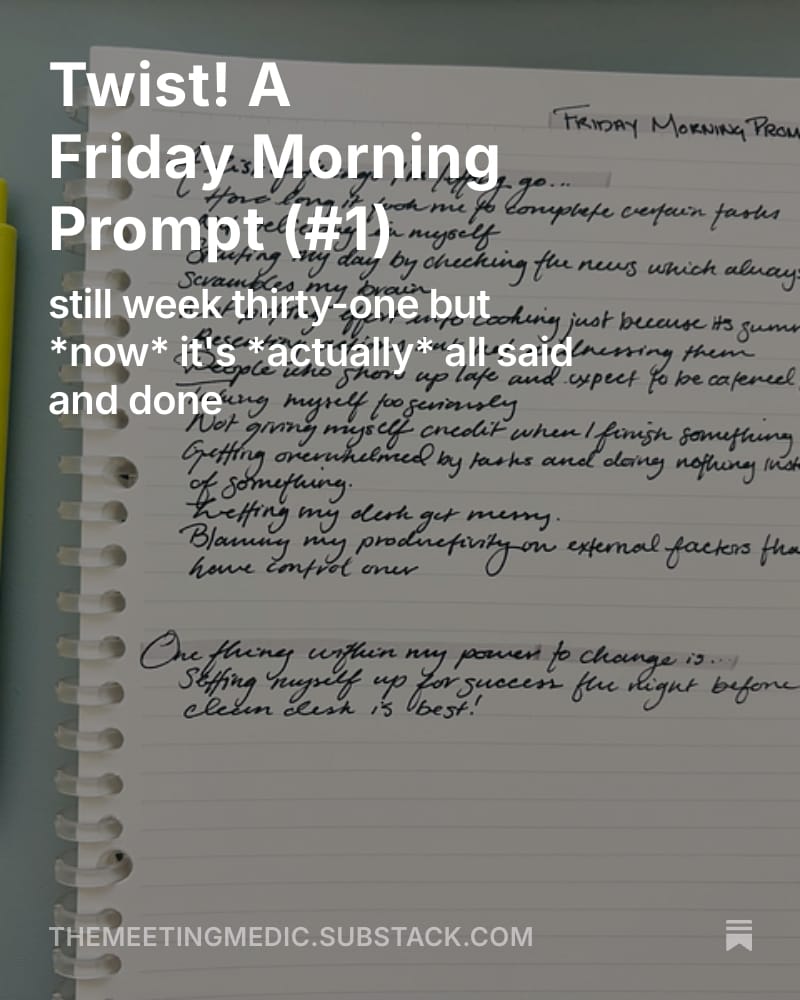 Twist! A
Friday Morning
Prompt (#1)
still week thirty-one but
*now* it's *actually* all said
and done
FRIDAY MORNING PROM
go...
How long it took me to complete certain tasks
myself
Starting my day by checking the news which always
Scrambles my brain
effort into cooking just because its summ
them
People who show up late and expect to be catered
Taking myself too seriously
Not giving myself credit when I finish something
Getting overwhelmed by tasks and doing nothing inst
of something.
Letting my desk get messy.
Blaming my productivity on external factors tha
have control over
One thing within my power to change is...
Setting myself up for success the night before
clean desk is best!
THEMEETINGMEDIC.SUBSTACK.COM